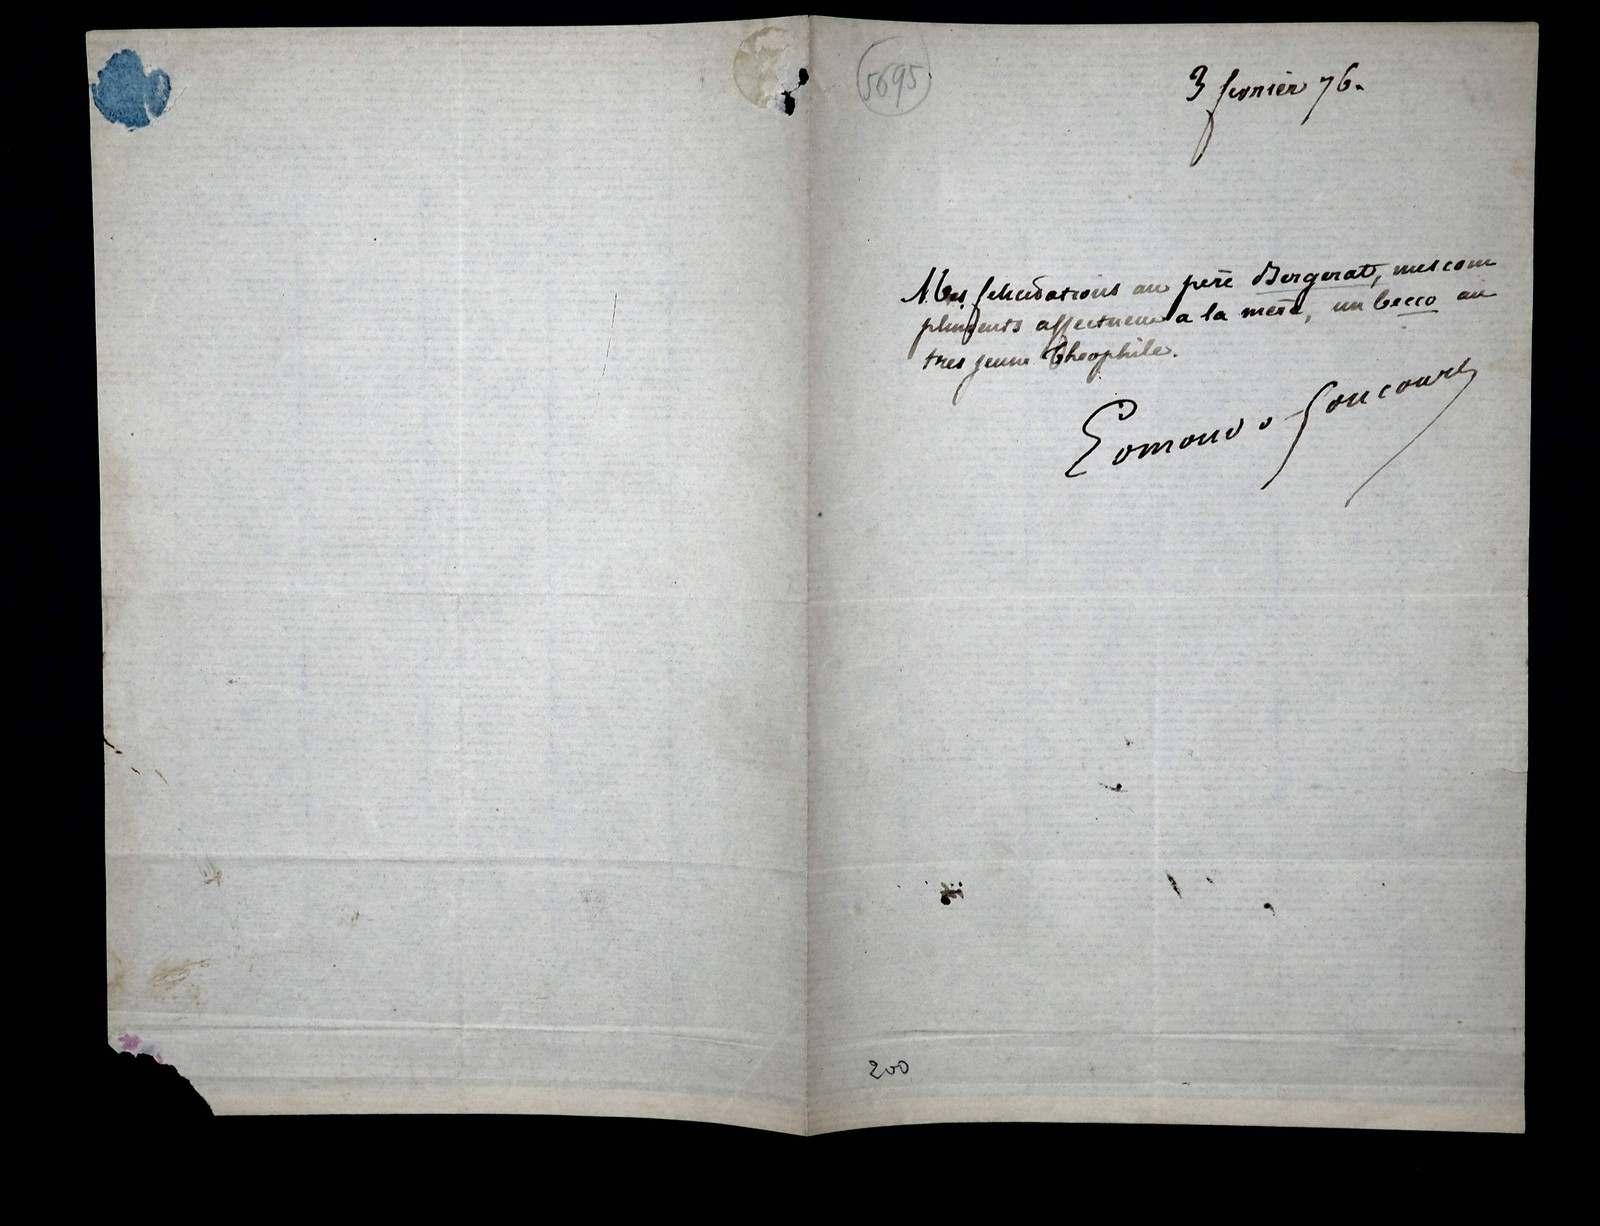 5695
3 fevrier 76.
Mes felicitations au père Bergerat, mes com
pliments affectueux a la mère, un becco au
tres jeune Theophile.
Edmond de Goncourt
200